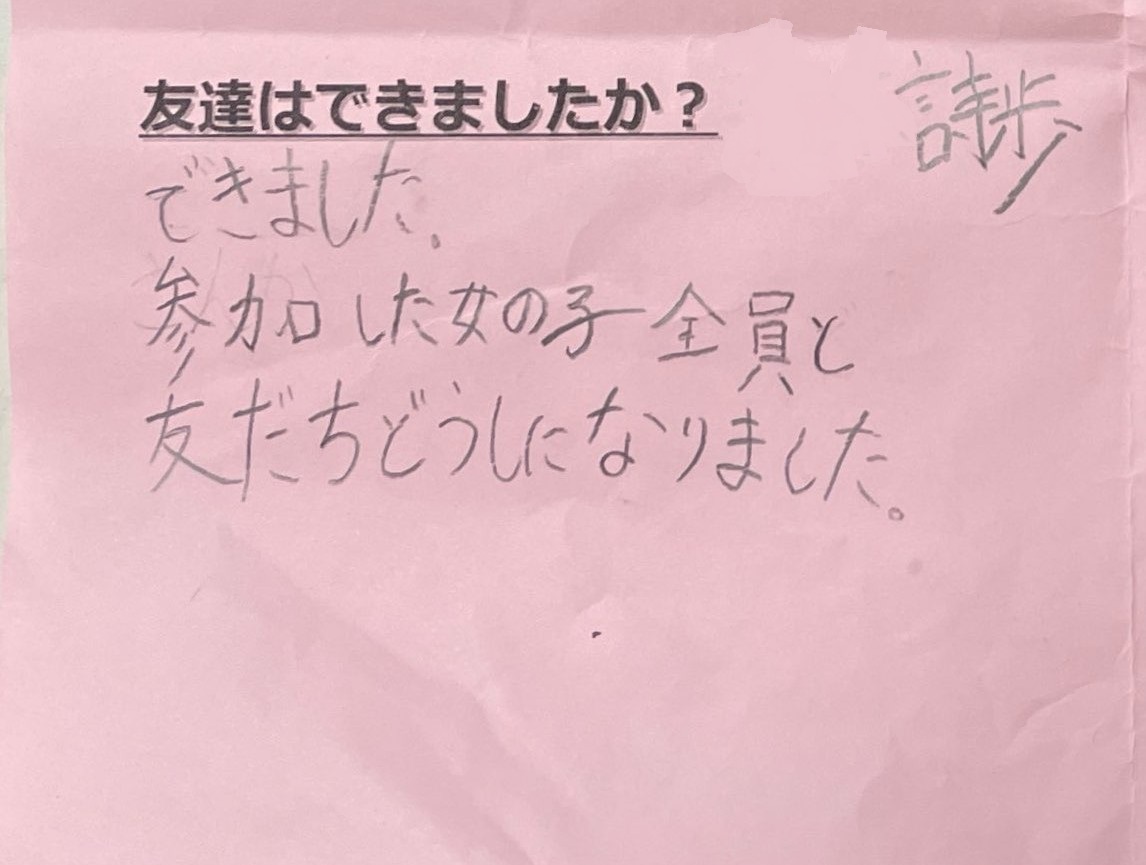 友達はできましたか？
詩歩
できました。
参加した女の子全員と
友だちどうしになりました。